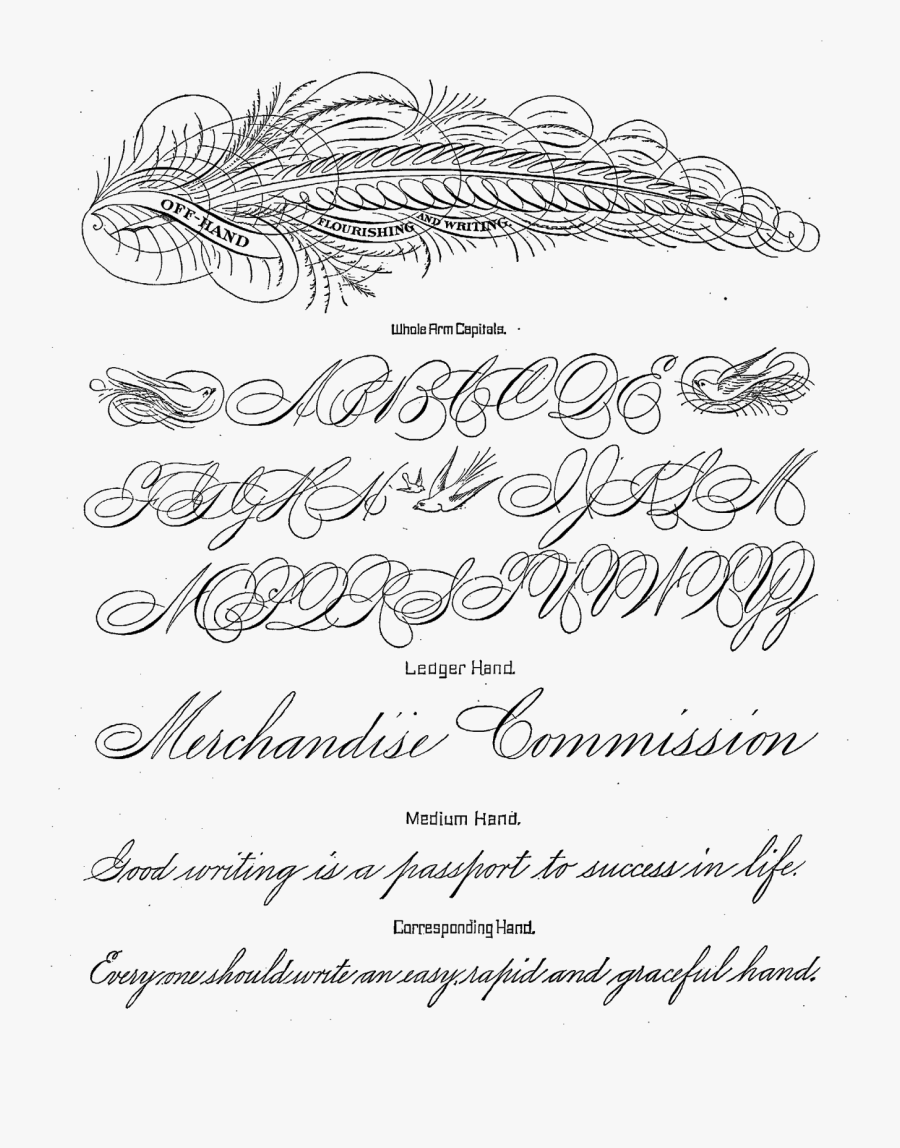 OFF-HAND FLOURISHING AND WRITING.
Whole Arm Capitals.
A B B C C D E
F G H I J K L M
N O P Q R S T U V W X Y Z
Ledger Hand.
Merchandise Commission
Medium Hand.
Good writing is a passport to success in life.
Corresponding Hand.
Every one should write an easy, rapid and graceful hand.